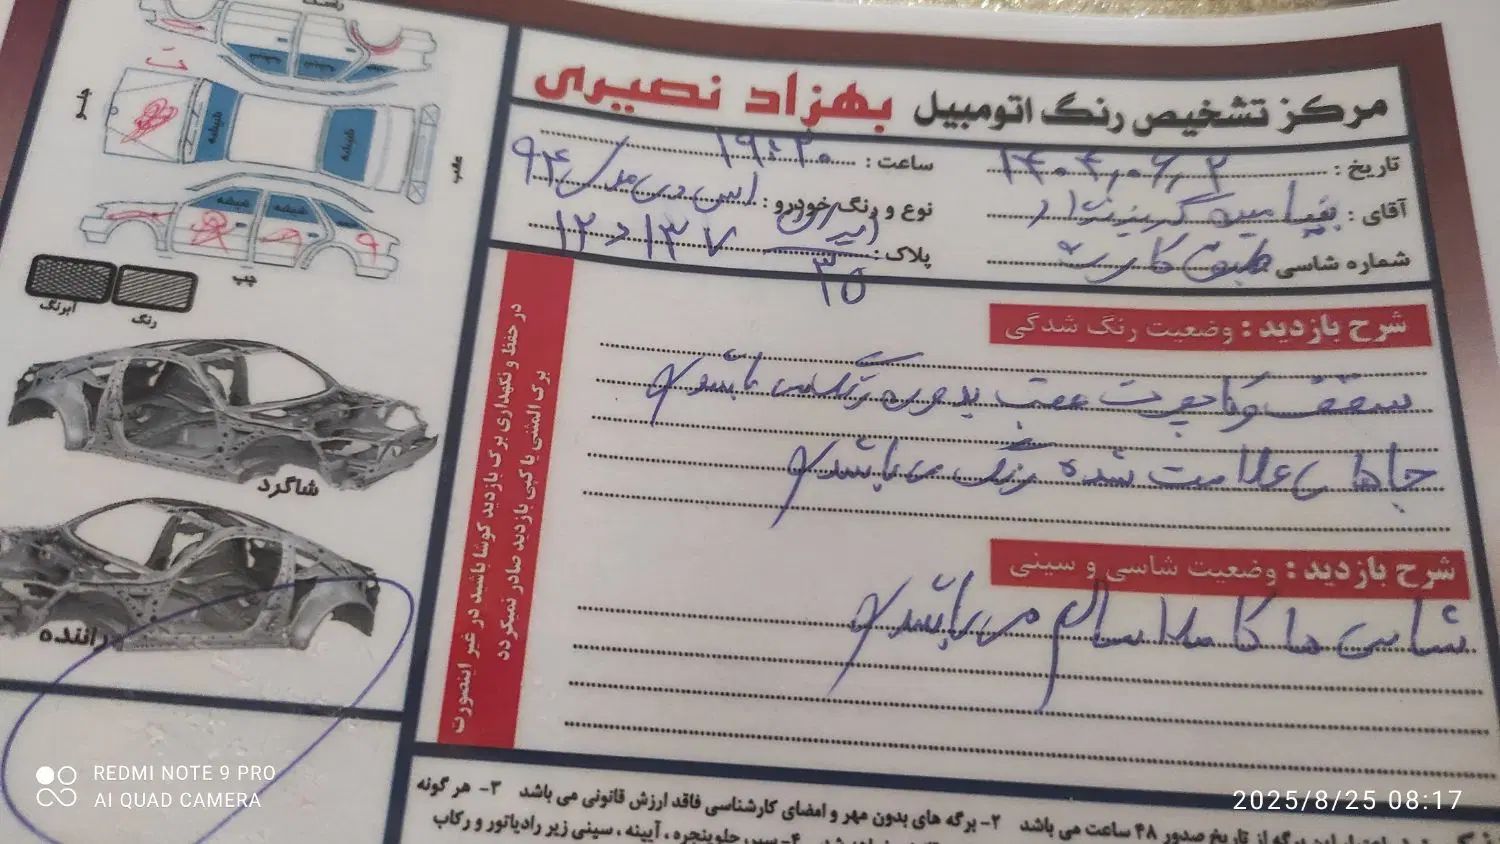 مرکز تشخیص رنگ اتومبیل بهزاد نصیری
تاریخ : ۱۴۰۴,۰۶,۲ ساعت : ۱۹:۲۰
آقای : نوع و رنگ خودرو : اس دی مدل ۹۴
شماره شاسی طبق کارت پلاک : ایران ۱۲ د ۱۳۷
۳۵
شرح بازدید : وضعیت رنگ شدگی
سقف و کاپوت عقب بدون رنگ می باشد
جاهای علامت شده رنگ می باشد
شرح بازدید : وضعیت شاسی و سینی
شاسی ها کاملا سالم می باشد
در حفظ و نگهداری برگ بازدید کوشا باشید در غیر اینصورت
برگ المثنی یا کپی بازدید صادر نمیگردد
راست
شیشه
شیشه
شیشه
شیشه
جلو
عقب
چپ
ابرنگ
رنگ
شاگرد
راننده
از تاریخ صدور ۴۸ ساعت می باشد ۲- برگه های بدون مهر و امضای کارشناسی فاقد ارزش قانونی می باشد ۳- هر گونه
۴- سپر، جلوپنجره ، آیینه ، سینی زیر رادیاتور و رکاب
REDMI NOTE 9 PRO
AI QUAD CAMERA
2025/8/25 08:17